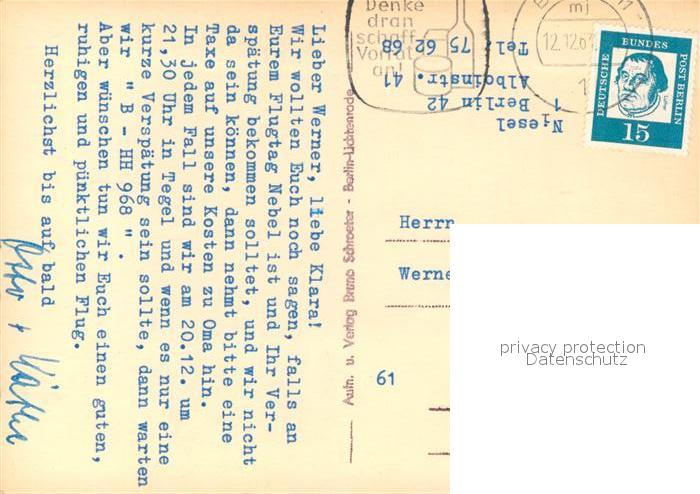 Lieber Werner, liebe Klara!
Wir wollten Euch noch sagen, falls an
Eurem Flugtag Nebel ist und Ihr Ver-
spätung bekommen solltet, und wir nicht
da sein können, dann nehmt bitte eine
Taxe auf unsere Kosten zu Oma hin.
In jedem Fall sind wir am 20.12. um
21,30 Uhr in Tegel und wenn es nur eine
kurze Verspätung sein sollte, dann warten
wir " B - HH 968 " .
Aber wünschen tun wir Euch einen guten,
ruhigen und pünktlichen Flug.
Herzlichst bis auf bald
Otto + Käthe
Aufn. u. Verlag Bruno Schroeter - Berlin-Lichtenrade
Niesel
1 Berlin 42
Alboinstr. 41
Tel: 75 62 68
Denke
dran
schaff
Vorrat
an!
mj
12.12.63
1
DEUTSCHE BUNDES POST BERLIN
15
Herrn
Werne
61
privacy protection
Datenschutz